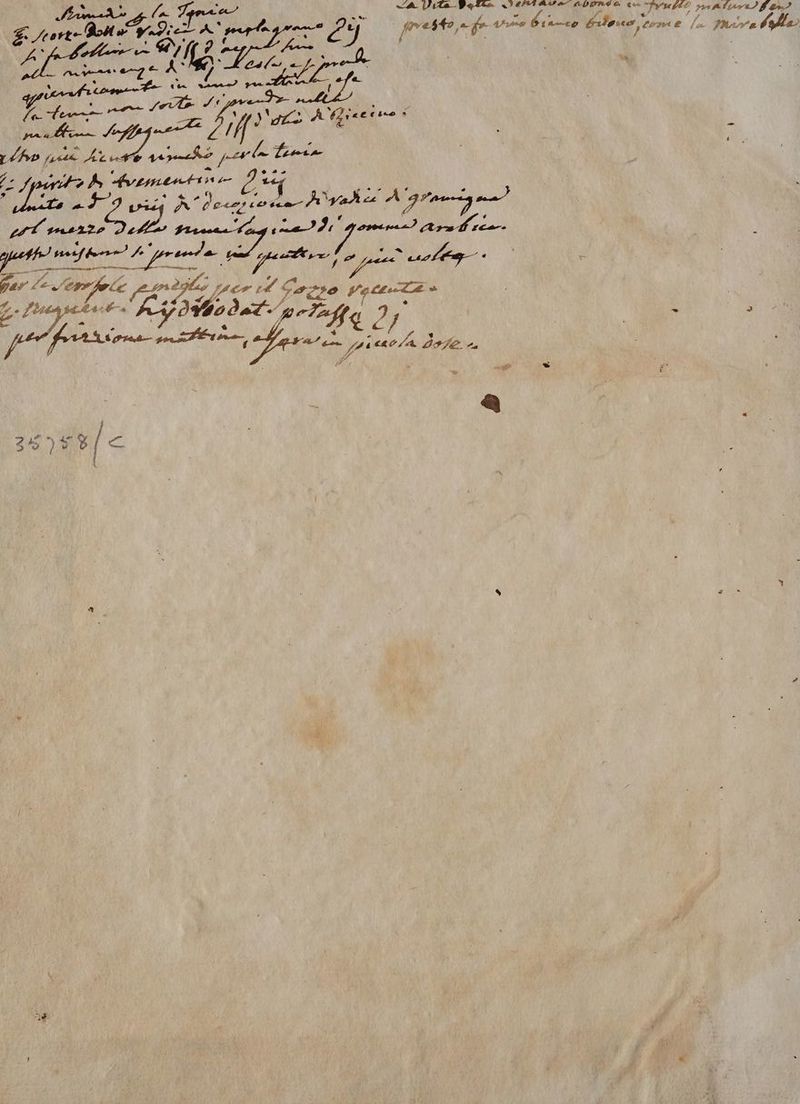 Rimedio p. la Tenia
Scorza della radice di melagrano ℥ij
si fa bollire in acqua sino
alla rimanenza di
epicraticamente in una mattina, e se
la tenia non sorte si prende nella
mattina susseguente d'olio di Riccino:
altro più sicuro rimedio per la tenia
spirito di trementina ℥iij
unito ad ℥ viij di decozione di radici di gramigna
col mezzo della mucilagine di gomma arabica.
questa mistura si prende in quattro, o più volte.
Per le Scrofole e meglio per il Gozzo recente.
Unguent. hydriodat. potassæ ℥j
per frizzione mattina, e sera in piccola dose.
La Vite detta abonda in frutto matura ben
presto, e fa vino bianco buono, come la Mirabella
35758/C